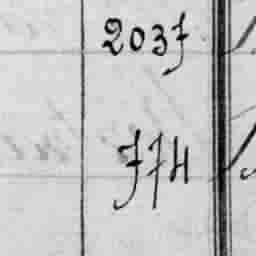 2037
774